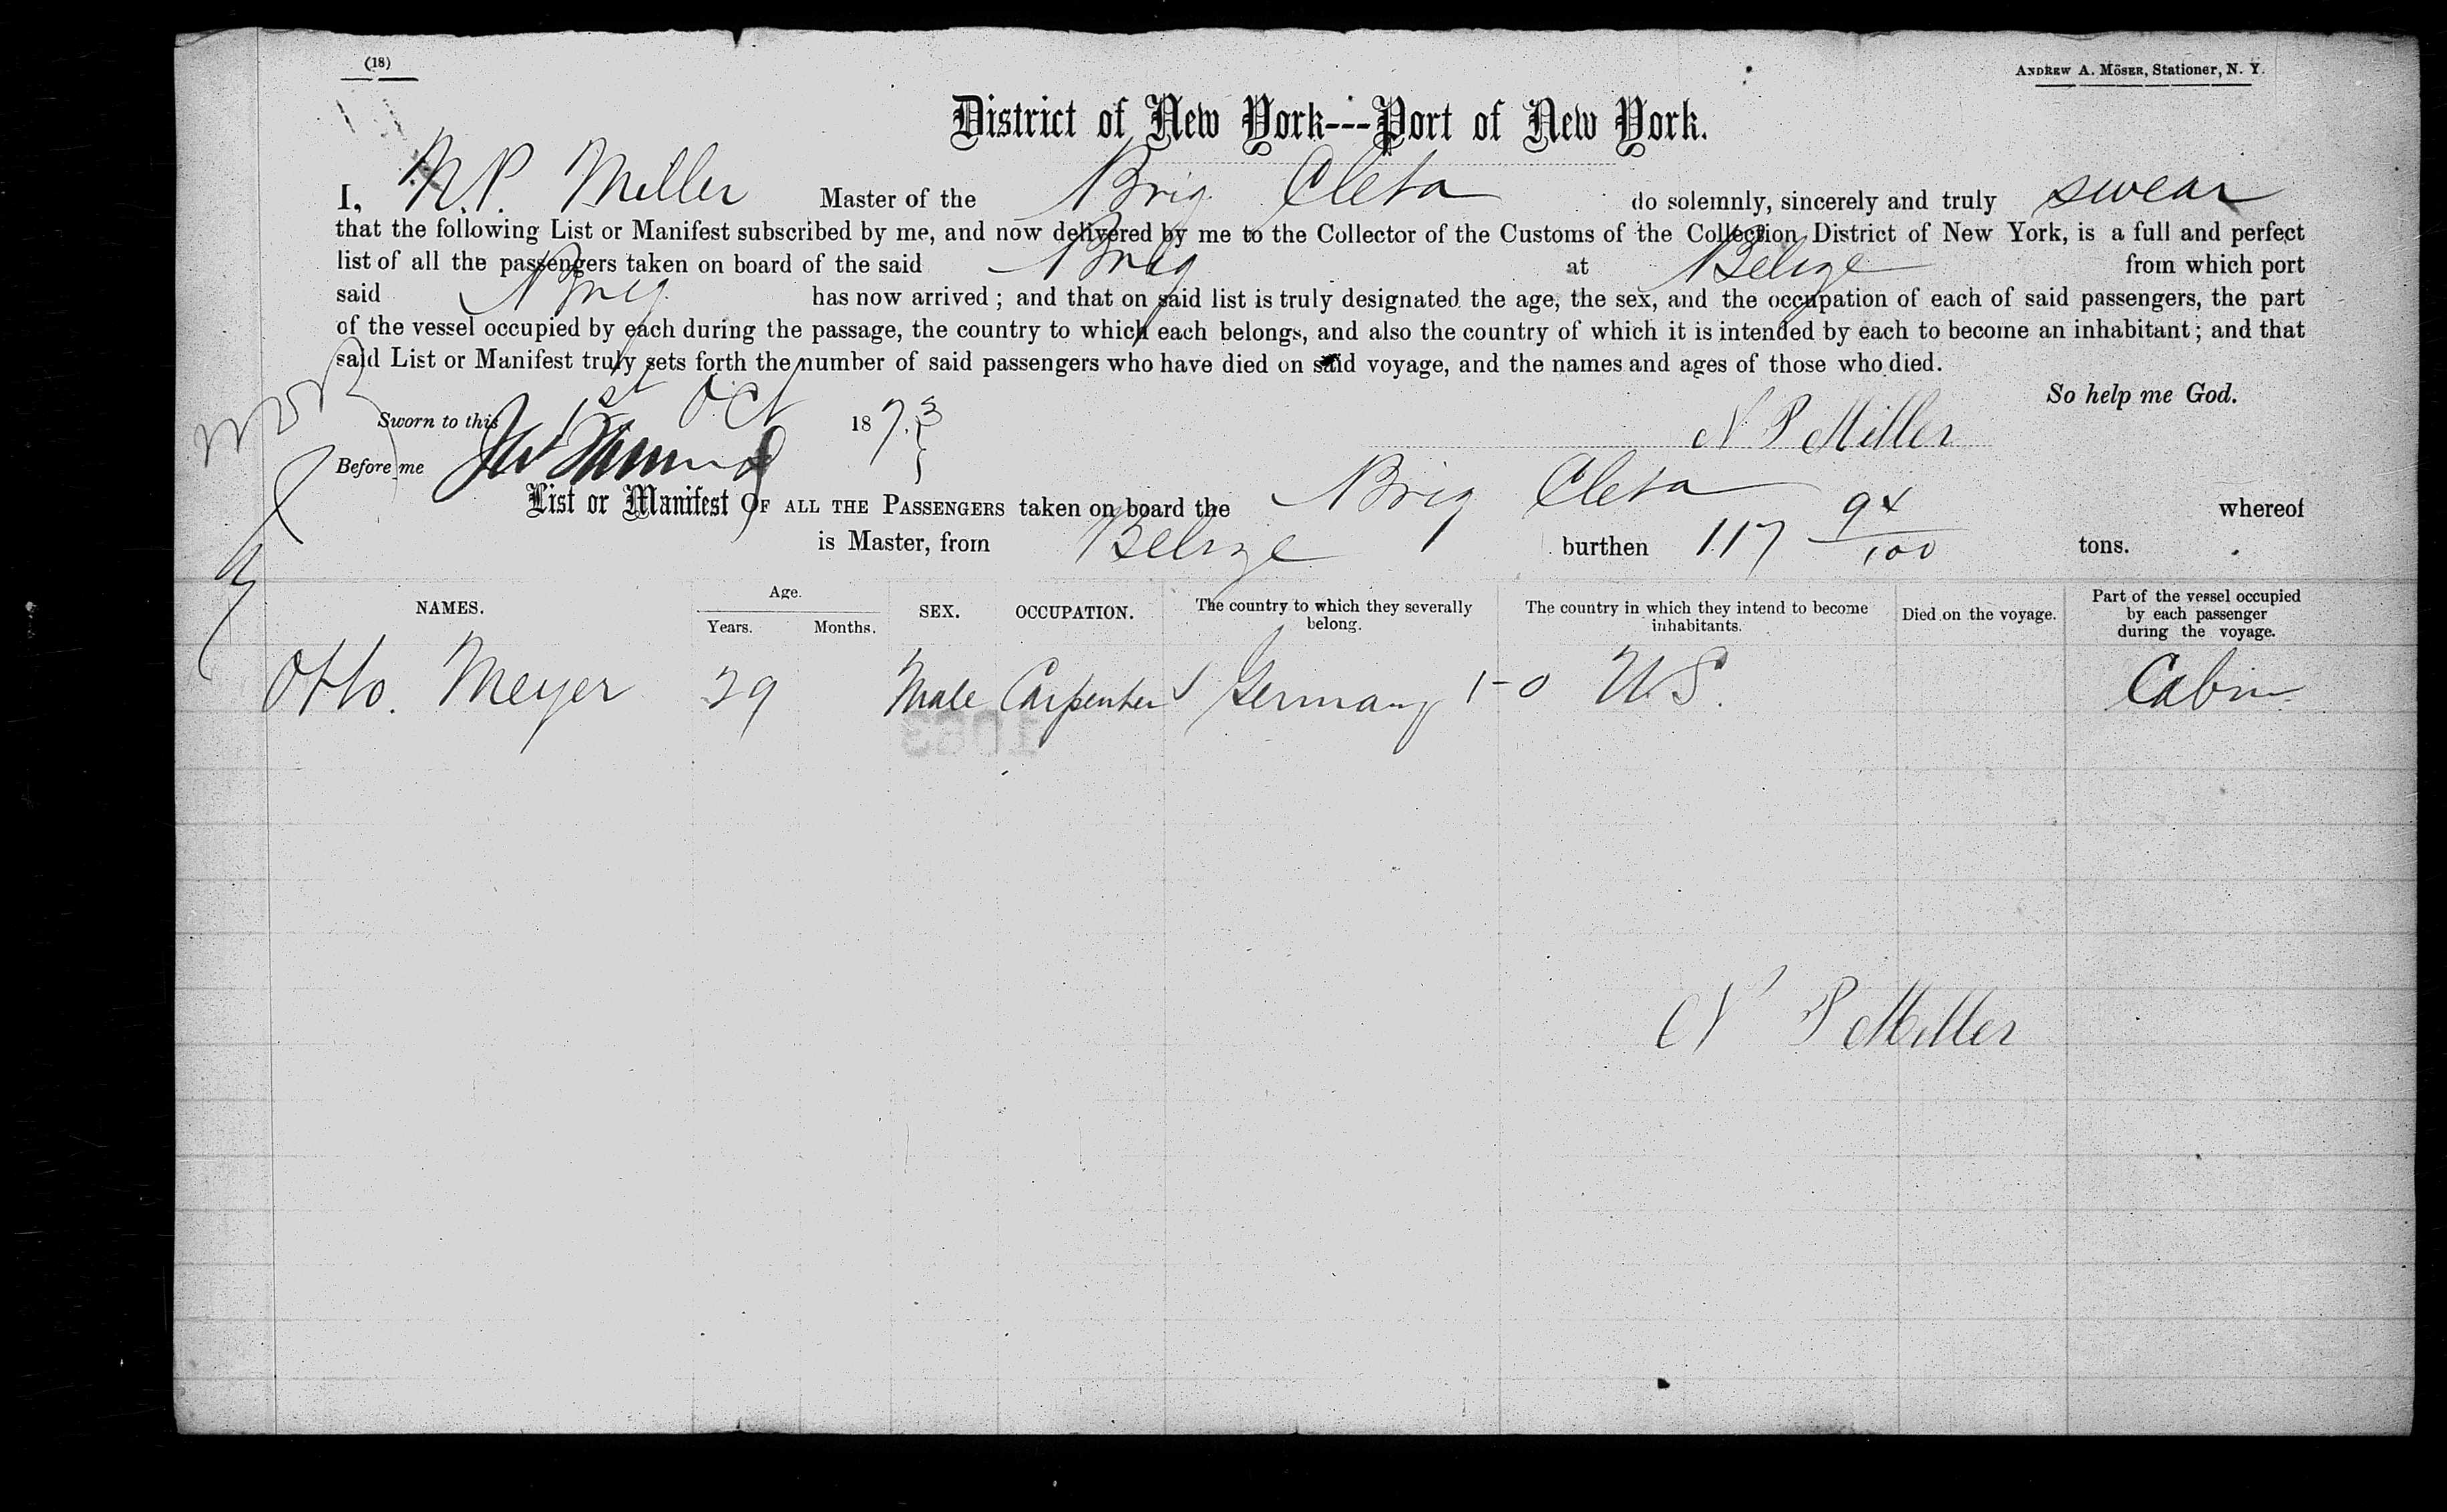 (18)
ANDREW A. MÖSER, Stationer, N. Y.
District of New York---Port of New York.
I, N. P. Miller Master of the Brig Cleta do solemnly, sincerely and truly swear
that the following List or Manifest subscribed by me, and now delivered by me to the Collector of the Customs of the Collection District of New York, is a full and perfect
list of all the passengers taken on board of the said Brig at Belize from which port
said Brig has now arrived ; and that on said list is truly designated the age, the sex, and the occupation of each of said passengers, the part
of the vessel occupied by each during the passage, the country to which each belongs, and also the country of which it is intended by each to become an inhabitant ; and that
said List or Manifest truly sets forth the number of said passengers who have died on said voyage, and the names and ages of those who died.
So help me God.
Sworn to this 1st Oct 187.3
N P Miller
Before me
List or Manifest OF ALL THE PASSENGERS taken on board the Brig Cleta whereof
is Master, from Belize burthen 117 94/100 tons.
NAMES. Age. Years. Months. SEX. OCCUPATION. The country to which they severally belong. The country in which they intend to become inhabitants. Died on the voyage. Part of the vessel occupied by each passenger during the voyage.
Otto. Meyer 29 Male Carpenter Germany 1-0 U.S. Cabin
N P Miller